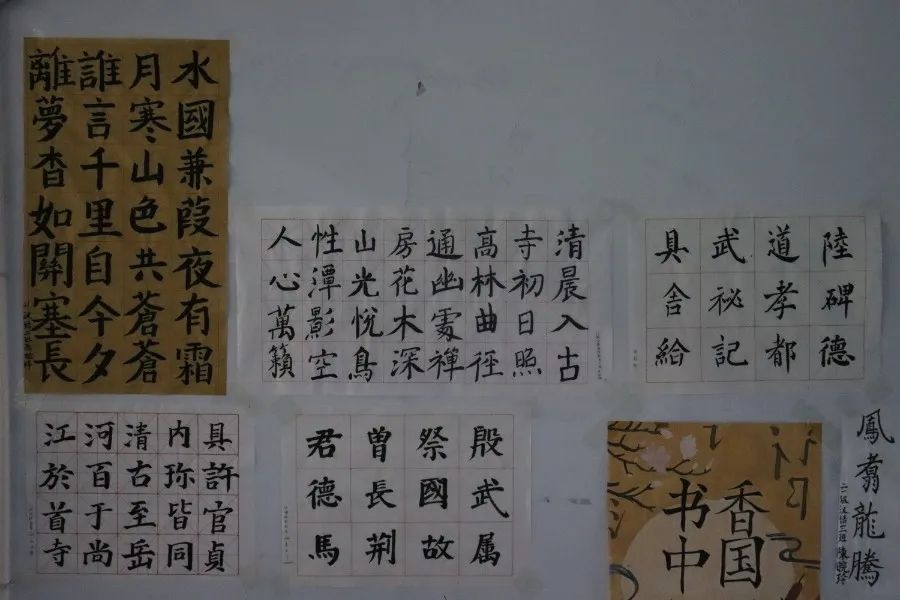 水國兼葭夜有霜
月寒山色共蒼蒼
誰言千里自今夕
離夢杳如關塞長
清晨入古
寺初日照
高林曲徑
通幽處禪
房花木深
山光悅鳥
性潭影空
人心萬籟
陸碑德
道孝都
武祕記
具舍給
具許官貞
内珎皆同
清古至岳
河百于尚
江於首寺
殷武属
祭國故
曾長荆
君德馬
香国
书中
鳳翥龍騰